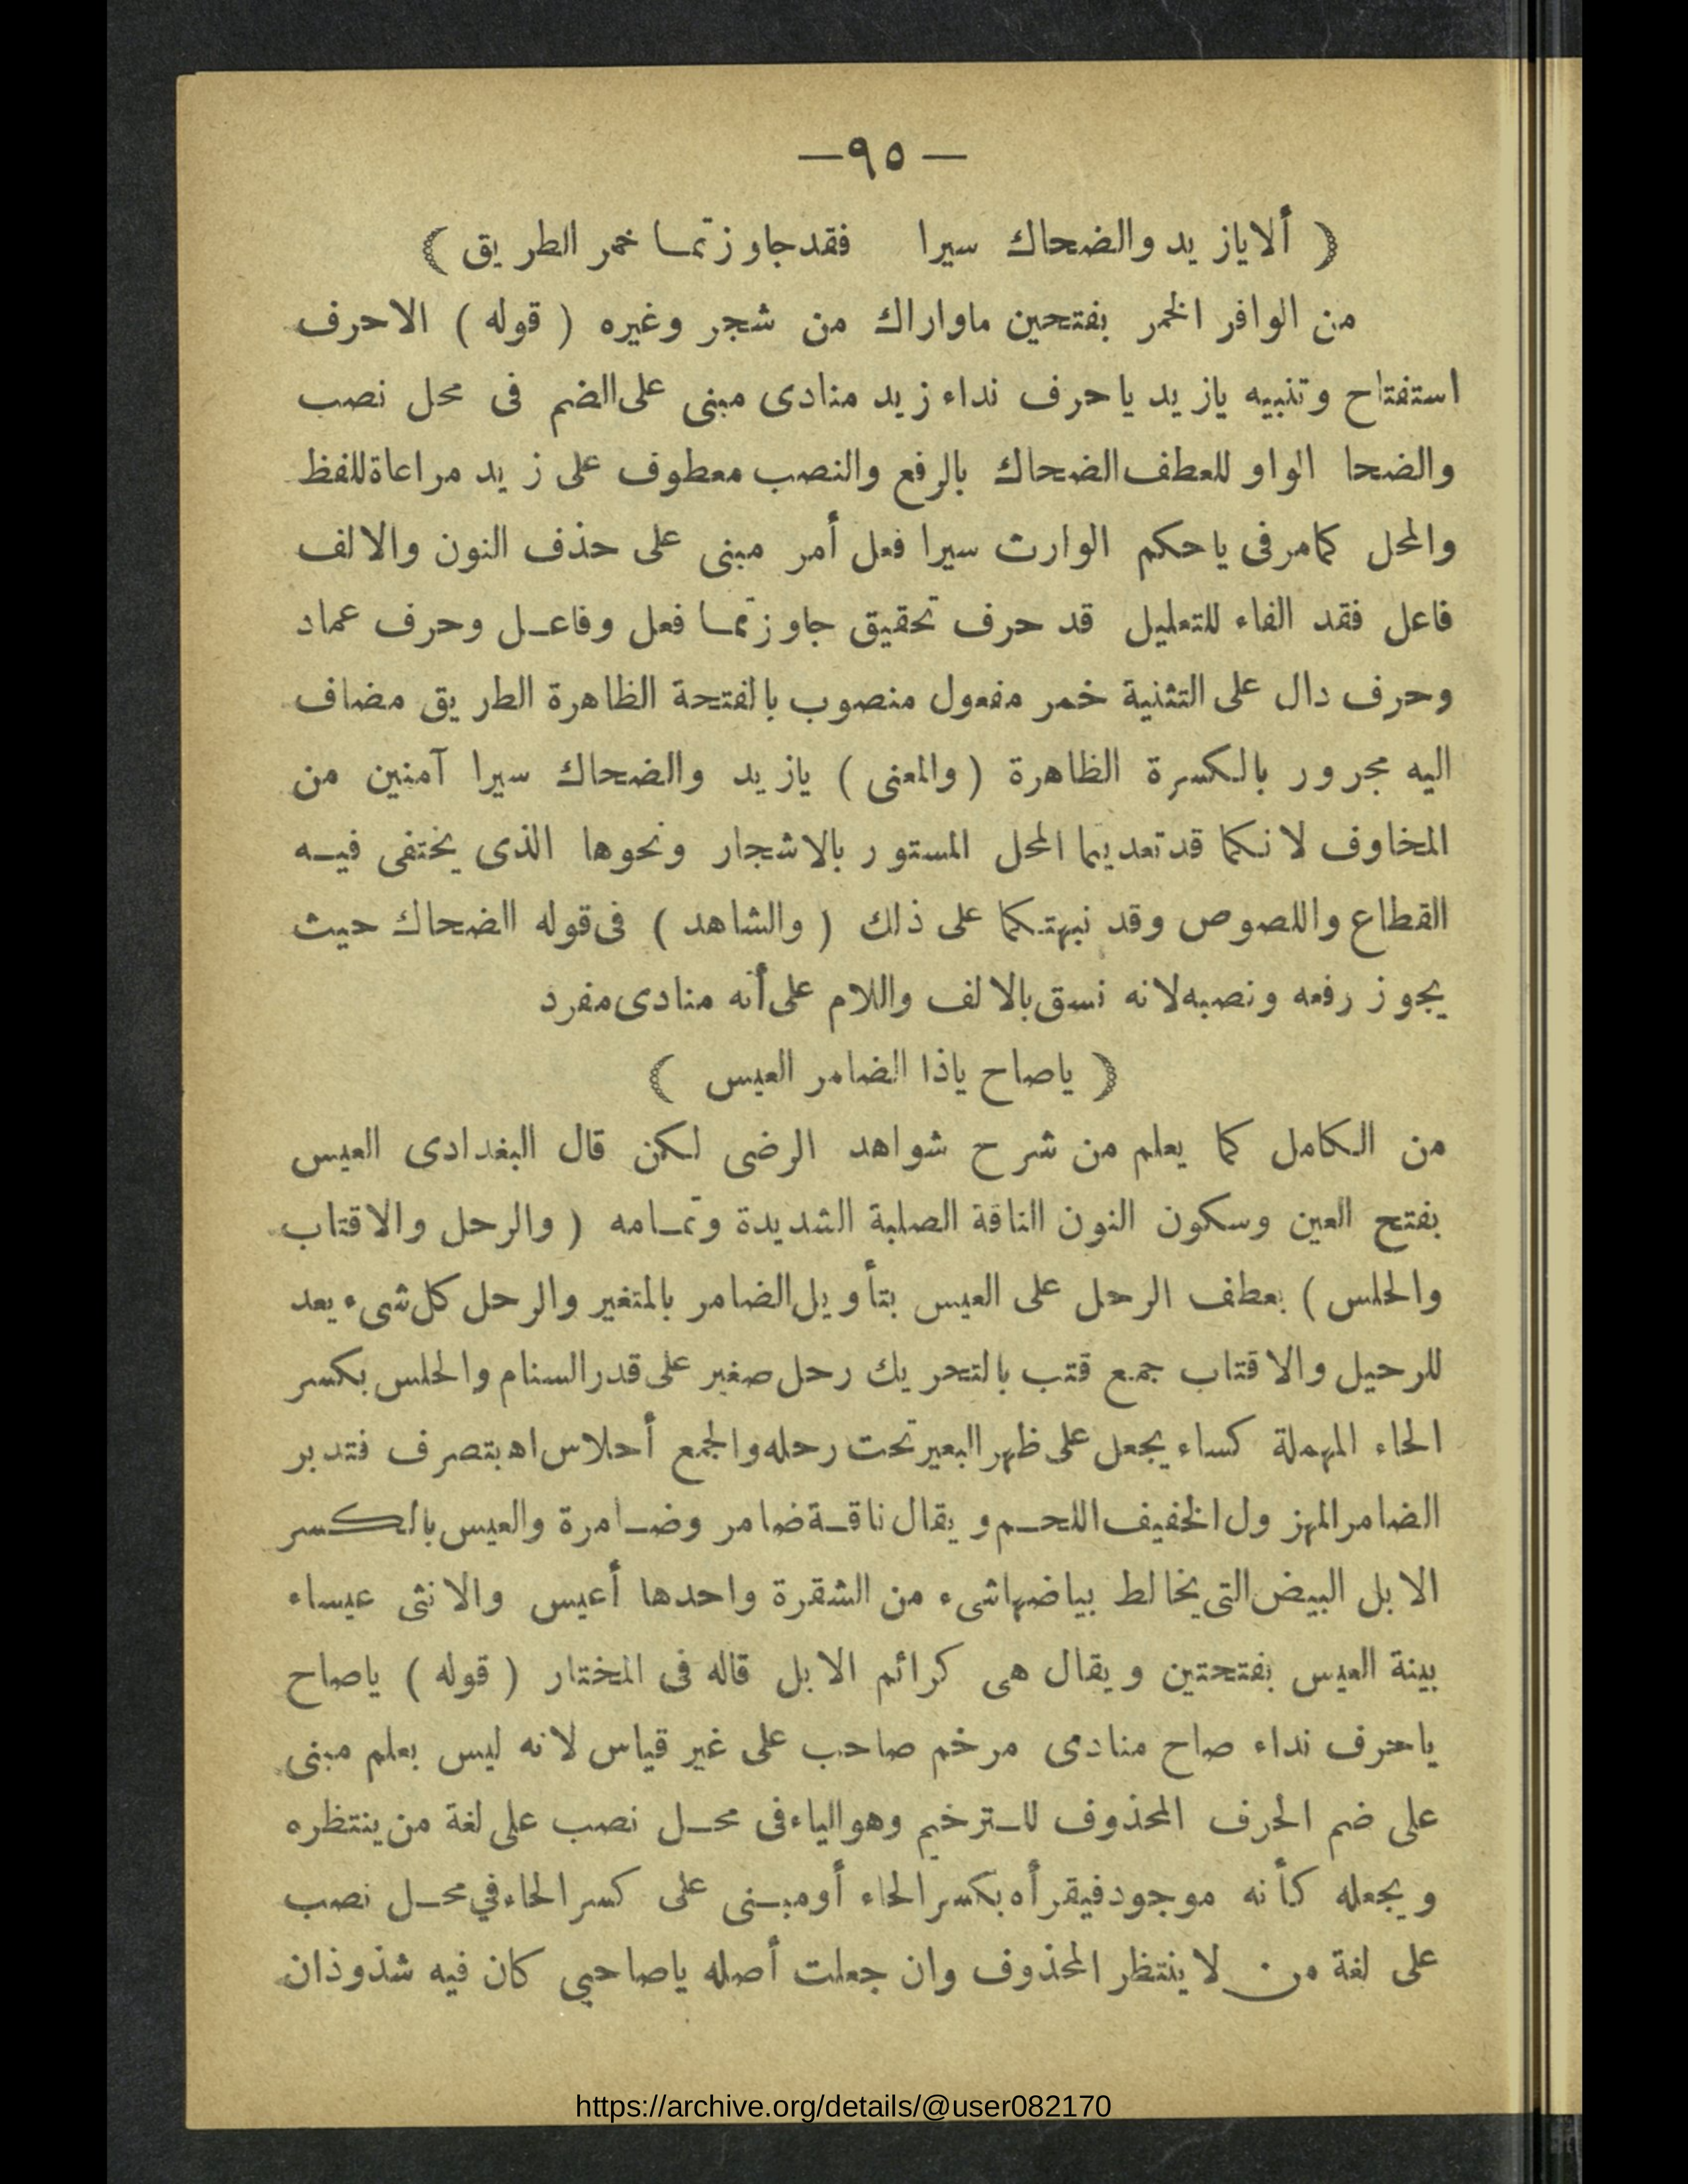 —٩٥—
( ألا يازيد والضحاك سيرا فقد جاوزتما خمر الطريق )
من الوافر الخمر بفتحين ماواراك من شجر وغيره ( قوله ) الاحرف
استفتاح وتنبيه يازيد ياحرف نداء زيد منادى مبنى على الضم فى محل نصب
والضحا الواو للعطف الضحاك بالرفع والنصب معطوف على زيد مراعاة للفظ
والمحل كمامر فى ياحكم الوارث سيرا فعل أمر مبنى على حذف النون والالف
فاعل فقد الفاء للتعليل قد حرف تحقيق جاوزتما فعل وفاعل وحرف عماد
وحرف دال على التثنية خمر مفعول منصوب بالفتحة الظاهرة الطريق مضاف
اليه مجرور بالكسرة الظاهرة ( والمعنى ) يازيد والضحاك سيرا آمنين من
المخاوف لانكما قد تعديما المحل المستور بالاشجار ونحوها الذى يختفى فيه
القطاع واللصوص وقد نبهتكما على ذلك ( والشاهد ) فى قوله الضحاك حيث
يجوز رفعه ونصبه لانه نسق بالالف واللام على أنه منادى مفرد
( ياصاح ياذا الضامر العيس )
من الكامل كما يعلم من شرح شواهد الرضى لكن قال البغدادى العيس
بفتح العين وسكون النون الناقة الصلبة الشديدة وتمامه ( والرحل والاقتاب
والحلس ) بعطف الرحل على العيس بتأويل الضامر بالمتغير والرحل كل شىء يعد
للرحيل والاقتاب جمع قتب بالتحريك رحل صغير على قدر السنام والحلس بكسر
الحاء المهملة كساء يجعل على ظهر البعير تحت رحله والجمع أحلاس اه بتصرف فتدبر
الضامر المهزول الخفيف اللحم ويقال ناقة ضامر وضامرة والعيس بالكسر
الابل البيض التى يخالط بياضها شىء من الشقرة واحدها أعيس والانثى عيساء
بينة العيس بفتحتين ويقال هى كرائم الابل قاله فى المختار ( قوله ) ياصاح
ياحرف نداء صاح منادى مرخم صاحب على غير قياس لانه ليس بعلم مبنى
على ضم الحرف المحذوف للترخيم وهو الياء فى محل نصب على لغة من ينتظره
ويجعله كأنه موجود فيقرأه بكسر الحاء أومبنى على كسر الحاء في محل نصب
على لغة من لاينتظر المحذوف وان جعلت أصله ياصاحبي كان فيه شذوذان
https://archive.org/details/@user082170